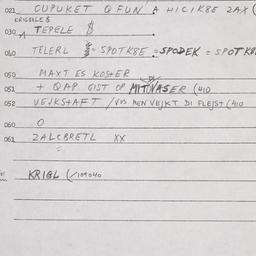 021 CUPUKET Q FUN A HICIK8E 2AX (
KRIGALE $
030 A TEPELE $
040 TELERL = SPOTK8E = SPODEK = SPOTK8
050 MAXT ES KOSHER
051 + QAP GIST OP MIT NASER (410
052 VEJKSHAFT / VOS MEN VEJKT DI FLEJST (410
060 O
061 2ALCBRETL XX
KRIGL (/109040